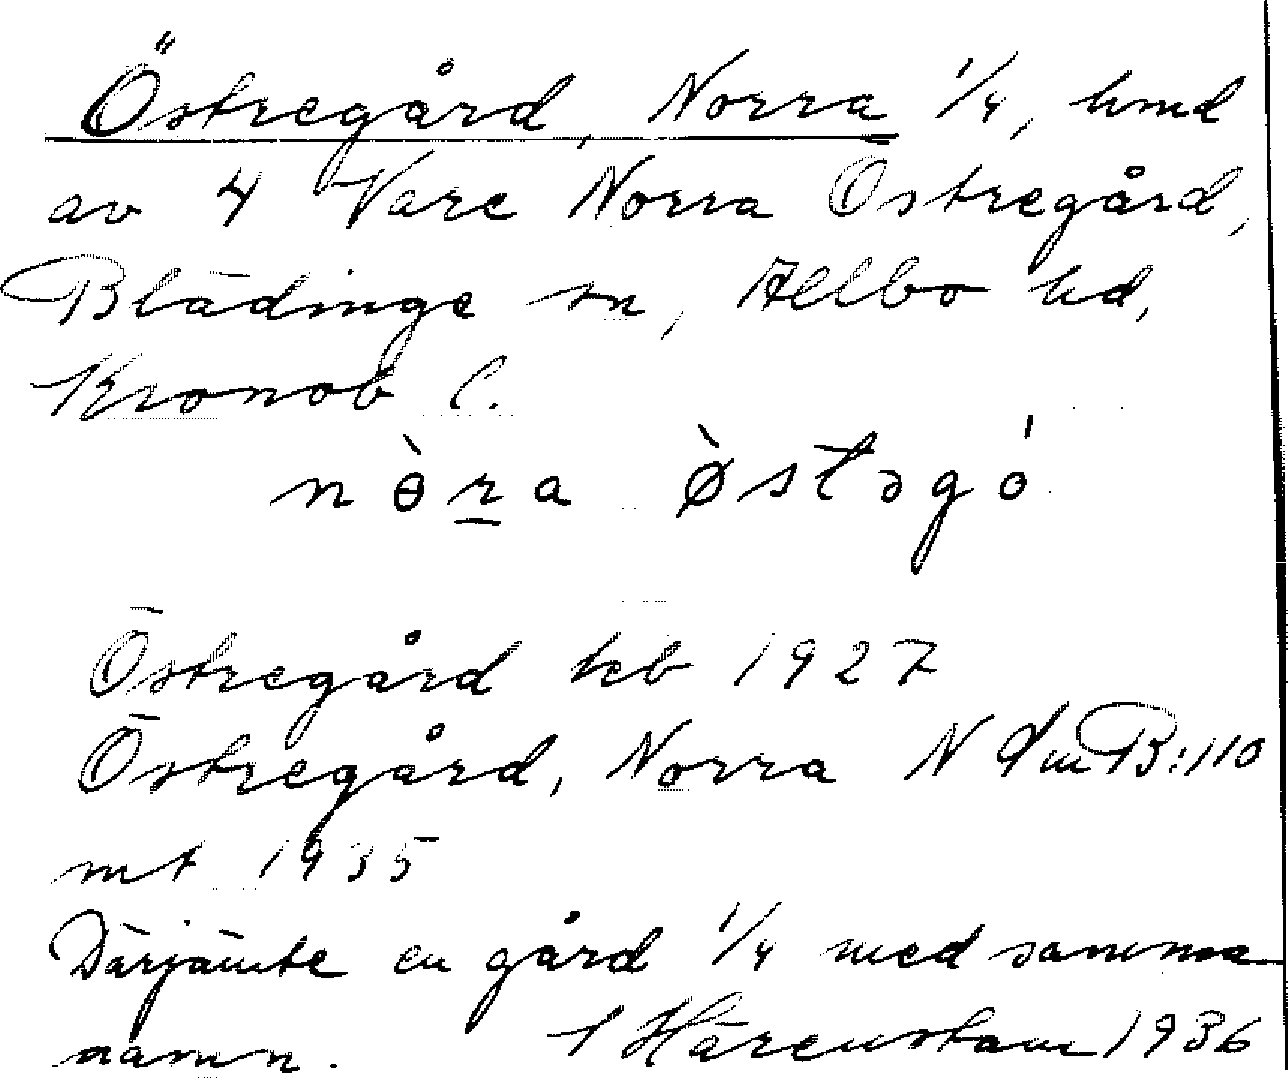 Östregård, Norra 1/4, hmd
av 4 Vare Norra Östregård,
Blädinge sn, Allbo hd,
Kronob l.
nɵ̀ra ø̀stəgó
Östregård kb 1927
Östregård, Norra N B:110
mt 1935
Därjämte en gård 1/4 med samma
namn. Härenstam 1936